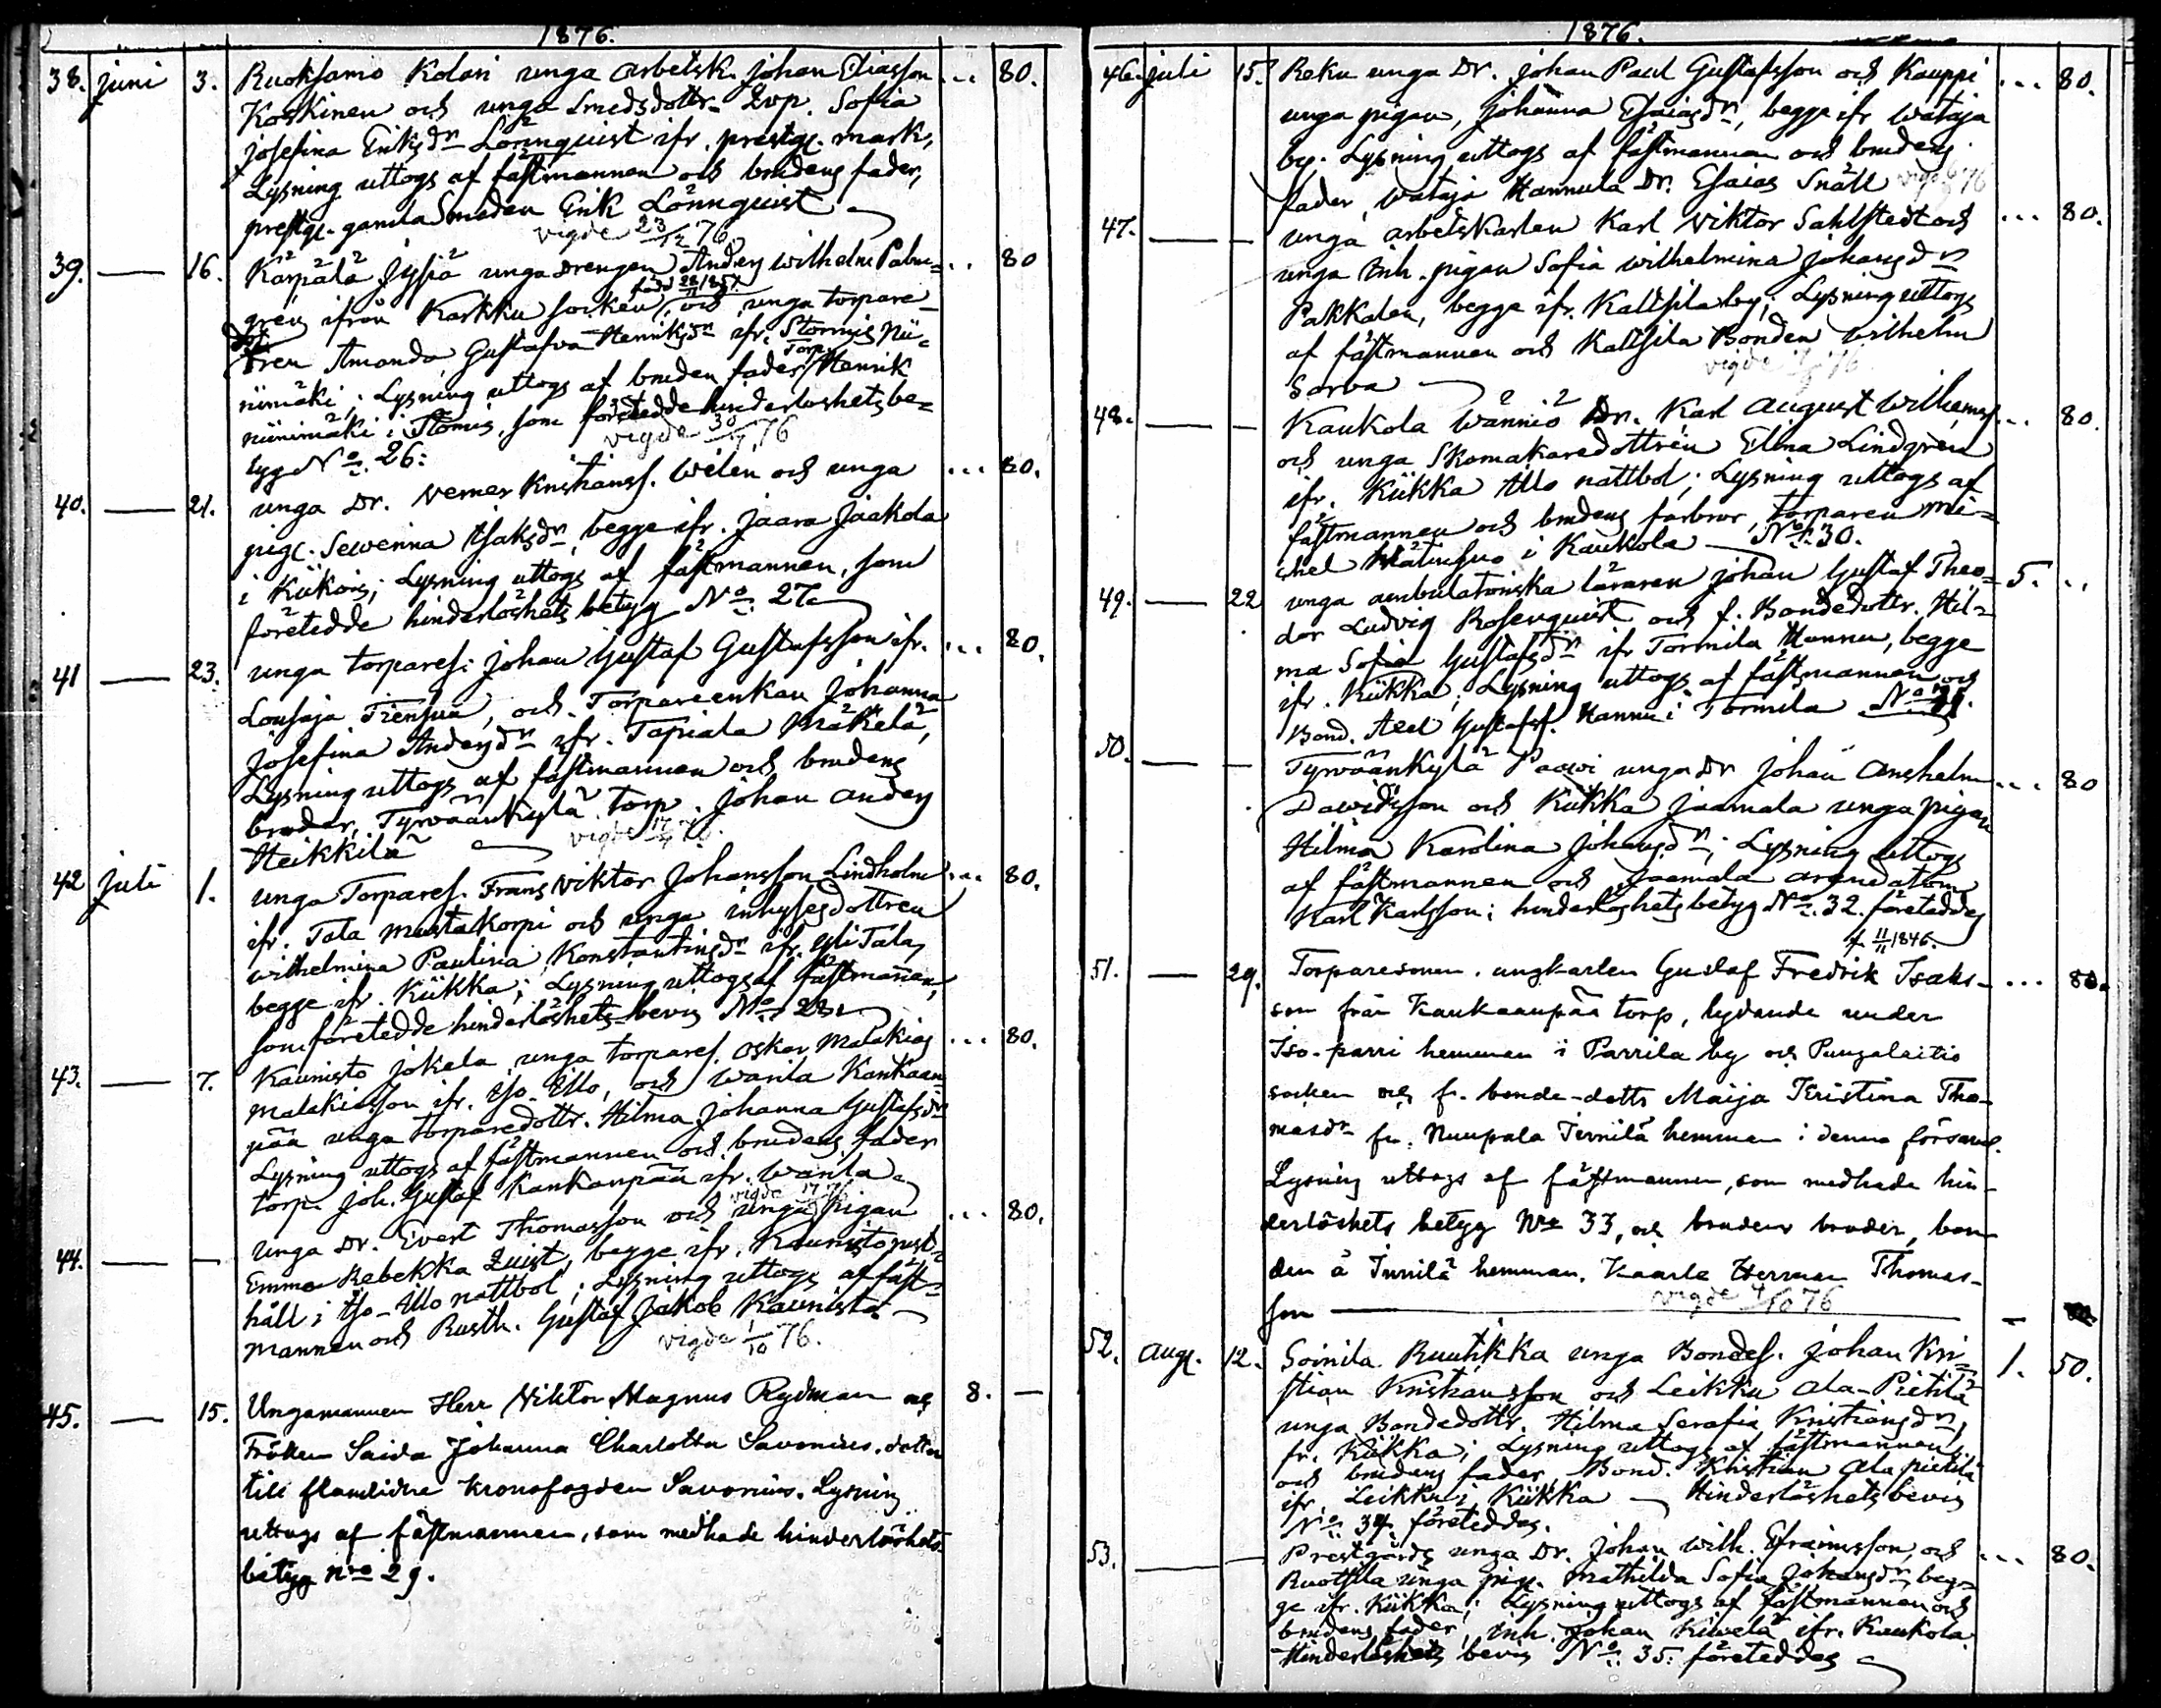 1876.
38. juni 3. Ruoksamo Kolari unga arbetsk. Johan Eliasson ... 80.
Koskinen och unga Smedsdottr. Qvp. Sofia
Josefina Eriksdn Lönnquist ifr. prestg. mark,
Lysning uttogs af fästmannen och brudens fader,
prestg. gamla Smeden Erik Lönnquist
vigde 23/12 76
39. — 16. Kärpälä Jysiä unga drengen Anders Wilhelm Palm= ... 80
född 28/11 1857.
gren ifrån Karkku socken, och unga torpare
dottren Amanda Gustafva Henriksdn ifr. Stormis Nii=
Torp.
niimäki; Lysning uttogs af bruden fader Henrik
niinimäki i Stomis, som företedde hinderlöshetsbe=
tyg No. 26: vigde 30/7 76
40. — 21. unga Dr. Verner Kristianss. Welén och unga ... 80.
pig. Sewerina Isaksdn begge ifr. Jaara Jaakola
i Kiikois; Lysning uttogs af fästmannen, som
företedde hinderlöshets betyg No. 27
41 — 23. unga torpares. Johan Gustaf Gustafsson ifr. ... 80.
Lousaja Tiensuu, och Torpareenkan Johanna
Josefina Andersdn ifr. Tapiala Mäkelä,
Lysning uttogs af fästmannen och brudens
broder, Tyrväänkylä torp. Johan Anders
Heikkilä vigde
42 juli 1. unga Torpares. Frans Viktor Johansson Lindholm ... 80.
ifr. Tala Mustakorpi och unga inhysesdottren
Wilhelmina Paulina Konstantinsdn ifr. Yli Tala,
begge ifr. Kiikka; Lysning uttogs af fästmannen,
som företedde hinderlöshets-bevis No. 28
43. — 7. Kaunisto Jokela unga torpares. Oskar Malakias ... 80.
Malakiasson ifr. Iso Ello, och Wanla Kankaan=
pää unga torparedottr. Hilma Johanna Gustafsdn
Lysning uttogs af fästmannen och brudens fader
torp. Joh. Gustaf Kankanpää ifr. Wanla
vigde 17/9 76
44. — — unga Dr. Evert Thomasson och unga pigan ... 80.
Emma Rebekka Quist, begge ifr. Kaunisto rust=
håll i Iso-Illo nattbol; Lysning uttogs af fäst=
mannen och Rusth. Gustaf Jakob Kaunisto
vigde 1/10 76.
45. — 15. Ungamannen Herr Viktor Magnus Rydman och 8. —
Fröken Saida Johanna Charlotta Savonius, dotter
till aflidne kronofogden Savonius. Lysning
uttogs af fästmannen, som medhade hinderlöshets-
betyg Nro 29.
1876.
46. juli 15. Reku unga Dr. Johan Paul Gustafsson och Kauppi ... 80.
unga pigan, Johanna Esaiasdn, begge ifr Wataja
by. Lysning uttogs af fästmannen och brudens
fader, Wataja Hannula Dr. Esaias Snäll vigde 76
47. — — unga arbetskarlen Karl Viktor Sahlstedt och ... 80.
unga Inh. pigan Sofia Wilhelmina Johansdn
Pakkalen, begge ifr. Kallsila by; Lysning uttogs
af fästmannen och Kallsila Bonden Wilhelm
Sorva vigde 76
48. — — Kaukola Wänniö Dr. Karl August Wilhemss. ... 80.
och unga Skomakaredottren Elina Lindgren
ifr. Kiikka Illo nattbol; Lysning uttogs af
fästmannen och brudens farbror, torparen Mi=
chel Mätinsuo i Kaukola — No. 30.
49. — 22 unga ambulatoriska läraren Johan Gustaf Theo= 5. ..
dor Ludvig Rosenquist och f. Bondedottr. Hil=
ma Sofia Gustafsdn ifr Tormila Hannu, begge
ifr. Kiikka; Lysning uttogs af fästmannen och
Bond. Axel Gustafss. Hannu i Tormila No. 31.
50. — — Tyrväänkylä Paawi unga Dr Johan Anshelm ... 80
Dawidsson och Kiikka Jaamala unga pigan
Hilma Karolina Johansdn; Lysning uttogs
af fästmannen och Jaamala arendatorn
Karl Karlsson; hinderlöshetsbetyg No. 32. företeddes
f. 11/11 1846.
51. — 29. Torparesonen, ungkarlen Gustaf Fredrik Isaks- ... 80.
son från Kankaanpää torp, lydande under
Iso-parri hemman i Parrila by och Pungalaitio
socken och fr. bonde-dottr Maija Kristina Tho-
masdr fr. Nuupala Junnilä hemman i denna församl.
Lysning uttogs af fästmannen, som medhade hin-
derlöshets betyg Nro 33, och brudens broder, bon-
den å Junnilä hemman, Kaarle Herman Thomas-
son — vigde 1/10 76
52. Aug. 12. Soinila Ruutikka unga Bondes. Johan Kri= 1. 50.
stian Kristiansson och Leikku Ala-Pietilä
unga Bondedottr. Hilma Serafia Kristiansdn,
fr. Kiikka; Lysning uttogs af fästmannen
och brudens fader, Bond. Kristian Ala pietilä
ifr. Leikku i Kiikka — Hinderlöshets bevis
No. 34. företeddes.
53. — — Prestgårds unga Dr. Johan Wilh. Efraimsson, och ... 80.
Ruottila unga pig. Mathilda Sofia Johansdn, beg=
ge ifr. Kiikka; Lysning uttogs af fästmannen och
brudens fader, inh. Johan Kiwelä ifr. Kaukola
Hinderlöshets bevis No. 35. företeddes